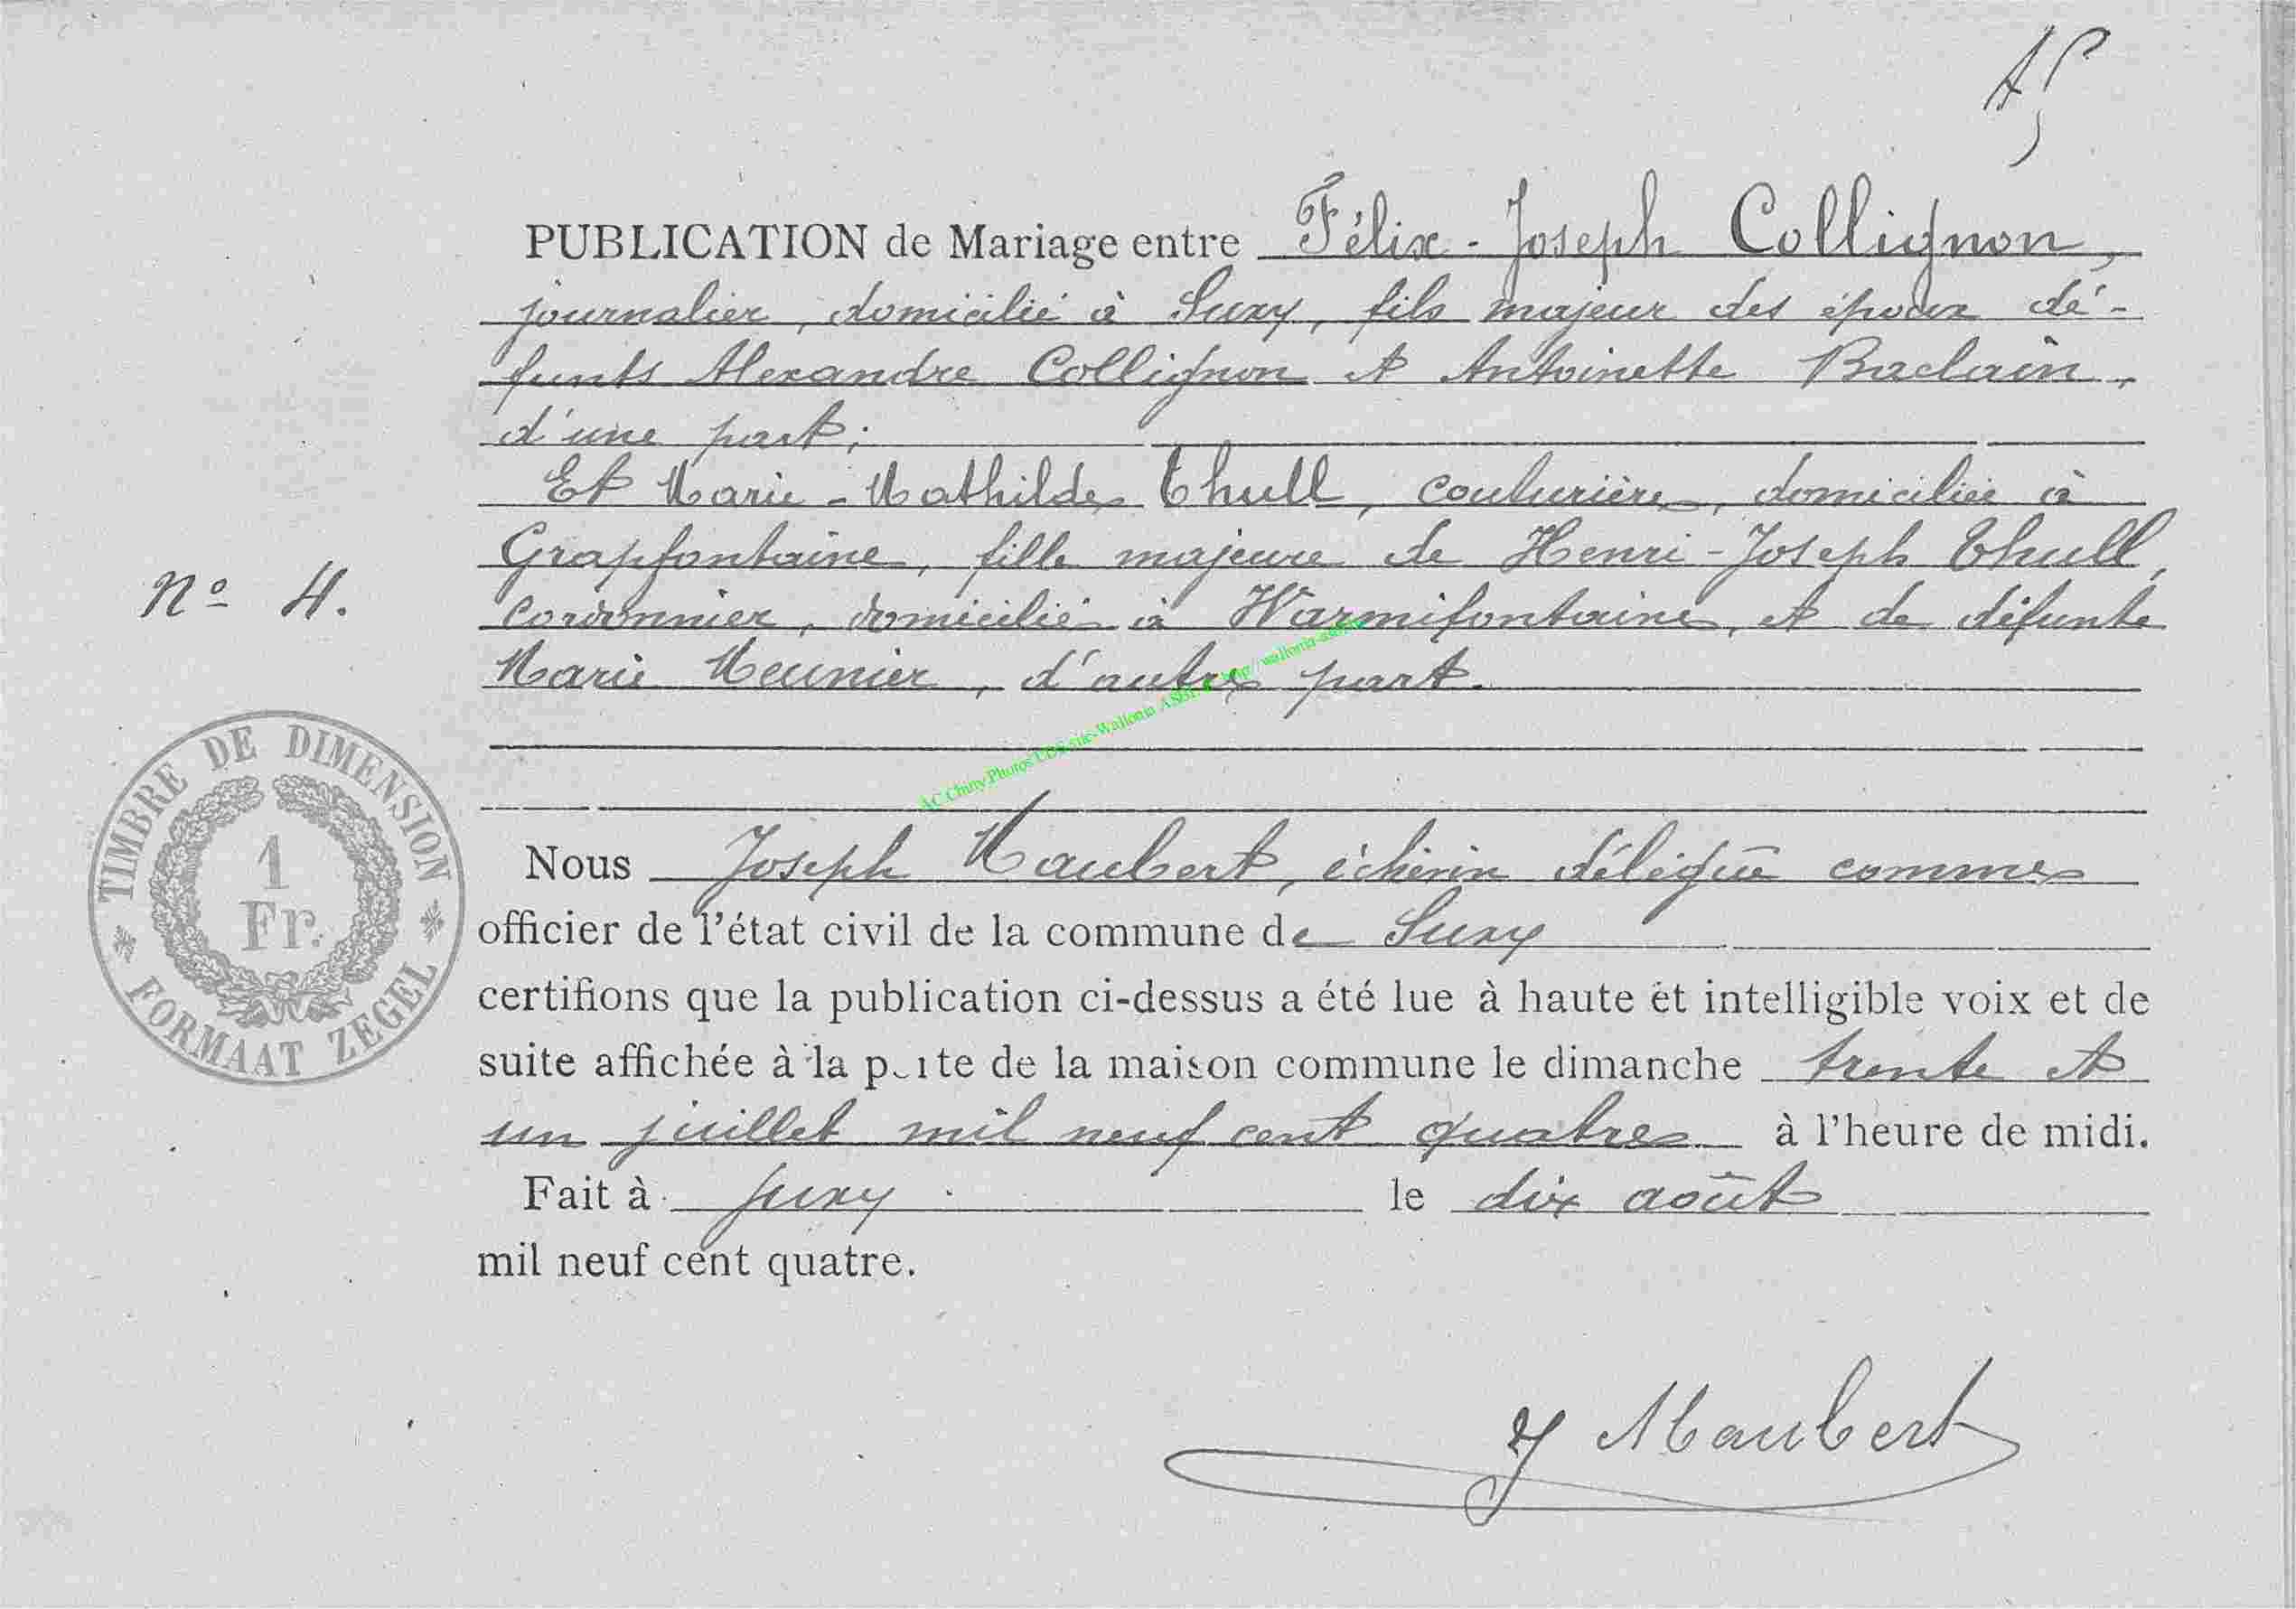 PUBLICATION de Mariage entre Félix-Joseph Collignon,
journalier, domicilié à Suxy, fils majeur des époux dé-
funts Alexandre Collignon et Antoinette Baclain,
d'une part;
Et Marie-Mathilde Thull, couturière, domiciliée à
Grapfontaine, fille majeure de Henri-Joseph Thull,
Nº 4.
cordonnier, domicilié à Warmifontaine, et de défunte
Marie Meunier, d'autre part.
AC Chiny Photos
TIMBRE DE DIMENSION
1
Fr.
FORMAAT ZEGEL
Nous Joseph Maubert, échevin délégué comme
officier de l'état civil de la commune de Suxy
certifions que la publication ci-dessus a été lue à haute et intelligible voix et de
suite affichée à la porte de la maison commune le dimanche trente et
un juillet mil neuf cent quatre à l'heure de midi.
Fait à Suxy le dix août
mil neuf cent quatre.
J Maubert